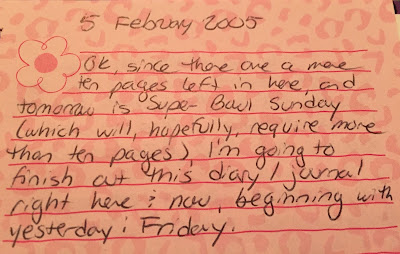 5 February 2005
Ok, since there are a mere
ten pages left in here, and
tomorrow is Super Bowl Sunday
(which will, hopefully, require more
than ten pages), I'm going to
finish out this diary/journal
right here & now, beginning with
yesterday: Friday.